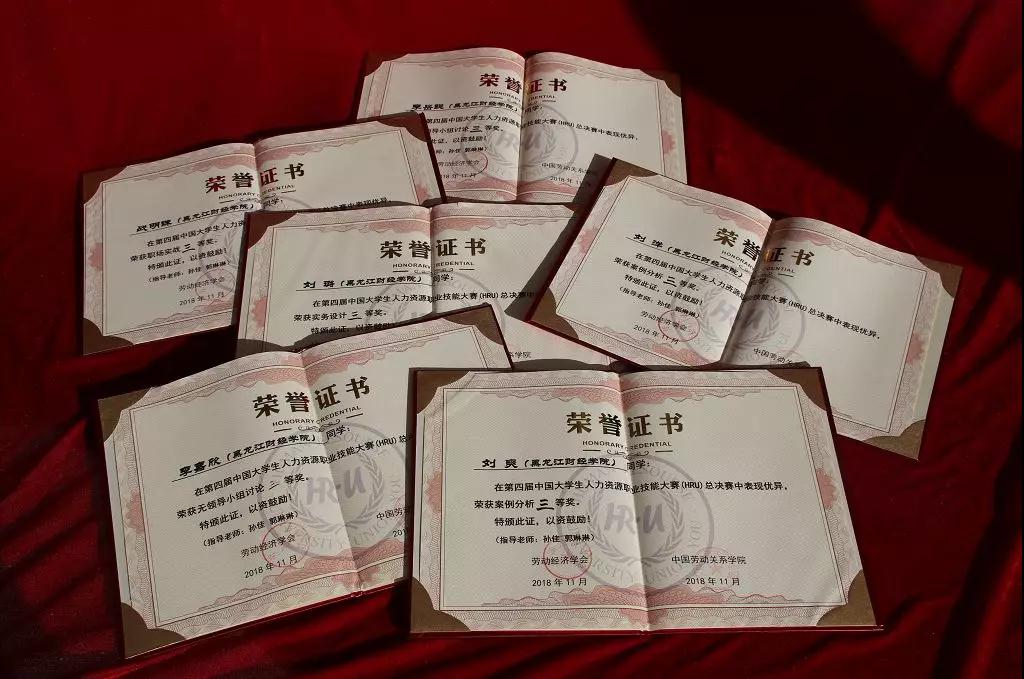 荣誉证书
HONORARY CREDENTIAL
(黑龙江财经学院) 同学:
第四届中国大学生人力资源 业技能大赛(HRU)总决赛中表现优异,
领导小组讨论 三 等奖。
此证,以资鼓励!
师:孙佳 郭琳琳)
劳动经济学会 中国劳动关系学院
2018 年 11 月 2018 年
荣誉证书
HONORARY CREDENTIAL
战明 (黑龙江财经学院) 同学:
在第四届中国大学生人力资 总决赛中表现优异,
荣获职场实战 三 等奖。
特颁此证,以资鼓励!
(指导老师:孙佳 郭琳琳)
劳动经济学会
2018 年 11 月
荣誉证书
HONORARY CREDENTIAL
刘 璐 (黑龙江财经学院) 同学:
在第四届中国大学生人力资源职业技能大赛(HRU)总决赛中
荣获实务设计 三 等奖。
特颁此证,以资鼓励!
关系学院
荣誉证书
HONORARY
刘 洋 (黑龙江财经学院)
在第四届中国大学生人力资源 业技能大赛(HRU)总决赛中表现优异,
荣获案例分析 三 等奖。
特颁此证,以资鼓励!
(指导老师:孙佳 郭琳琳)
劳动经济学会 中国劳动关
2018 年 11 月
荣誉证书
HONORARY CREDENTIAL
李嘉欣 (黑龙江财经学院) 同学:
在第四届中国大学生人力资源职业技能大赛(HRU)总
荣获无领导小组讨论 等奖。
特颁此证,以资鼓励!
(指导老师:孙佳 郭琳琳)
劳动经济学会 中国劳
2018 年 11 月 201
荣誉证书
HONORARY CREDENTIAL
刘 爽 (黑龙江财经学院) 同学:
在第四届中国大学生人力资源职业技能大赛(HRU)总决赛中表现优异,
荣获案例分析 三 等奖。
特颁此证,以资鼓励!
(指导老师:孙佳 郭琳琳)
HR-U
劳动经济学会 中国劳动关系学院
2018 年 11 月 2018 年 11 月